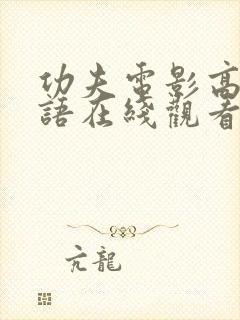 功夫電影高
語在綫觀看
亢龍